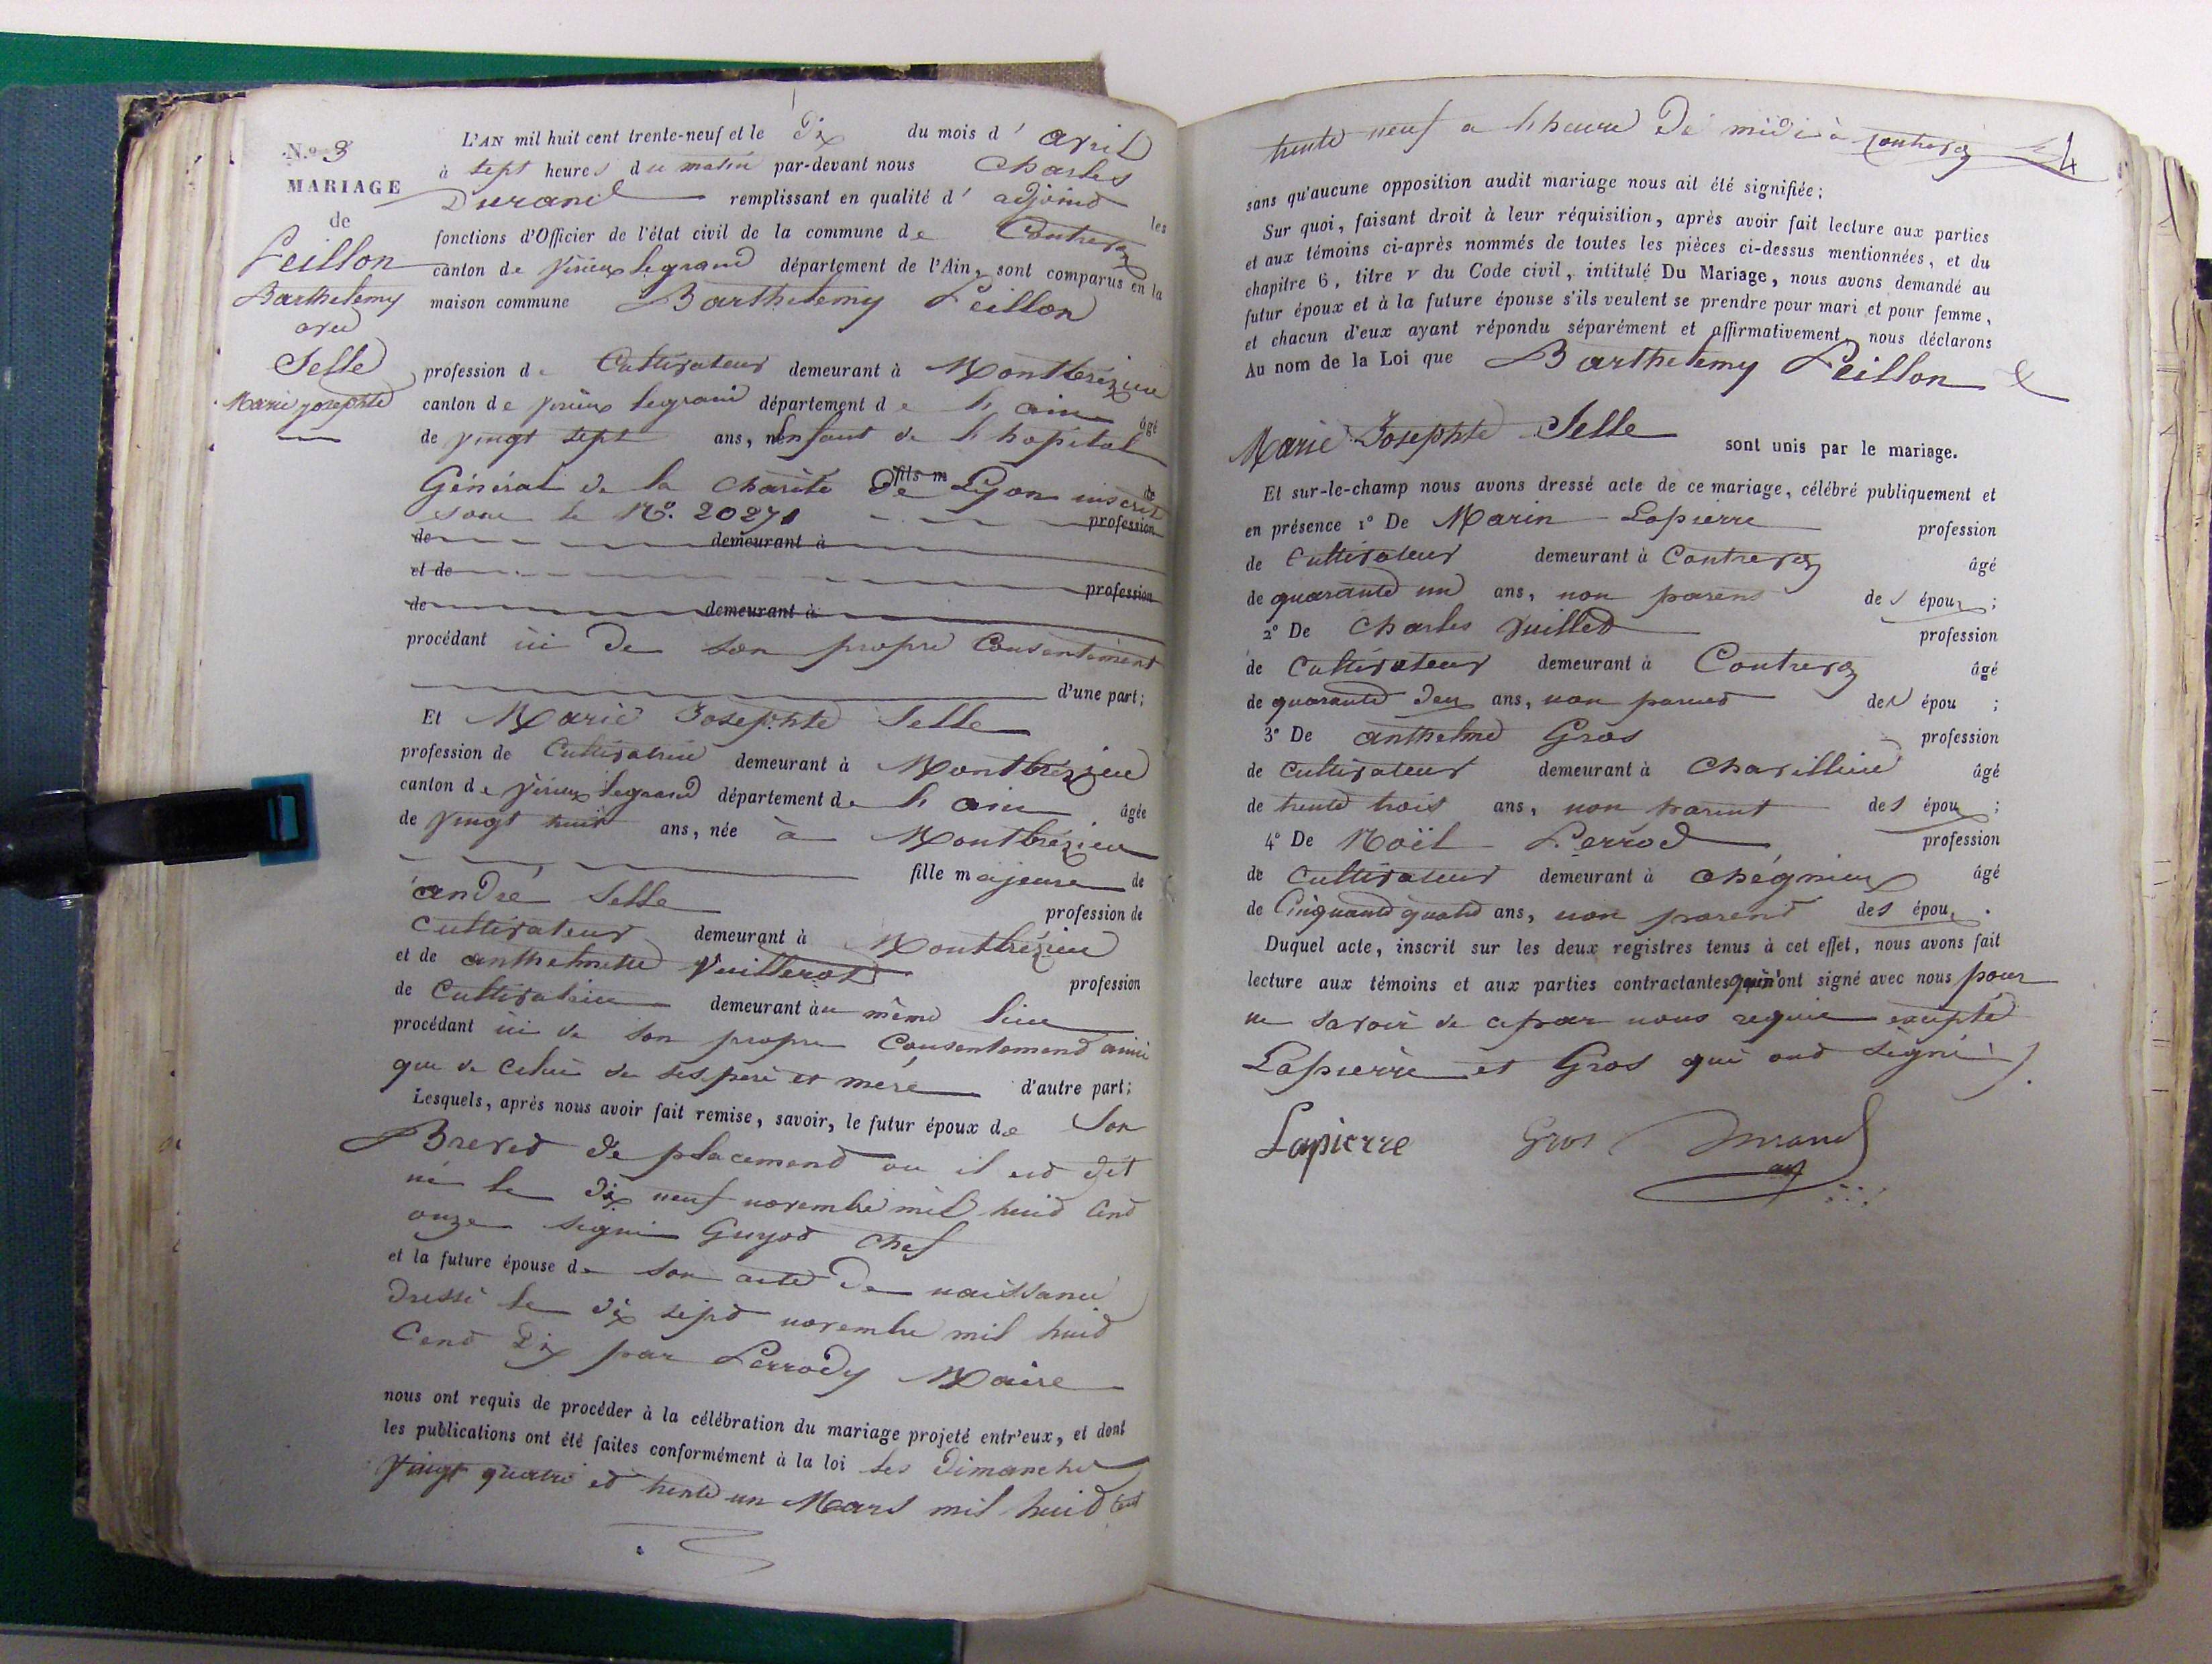 N.o 3
MARIAGE
de
Peillon
Barthelemy
avec
Selle
Marie josephte
L'AN mil huit cent trente-neuf et le Dix du mois d' avril
à sept heures du matin par-devant nous Charles
Durand remplissant en qualité d' adjoind les
fonctions d'Officier de l'état civil de la commune de Contrevoz
canton de Virieux legrand département de l'Ain, sont comparus en la
maison commune Barthelemy Peillon
profession de Cultivateur demeurant à Montbrézieu
canton de Virieux legrand département de l'ain âgé
de vingt sept ans, enfant de l'hopital
Général de la Charité De Lyon inscrit
fils m de
sous le No. 20271 profession
de demeurant à
et de profession
de demeurant à
procédant ici De son propre Consentement
d'une part;
Et Marie Josephte Selle
profession de Cultivatrice demeurant à Montbrézieu
canton de Virieux legrand département de l'ain âgée
de vingt huit ans, née à Montbrézieu
fille majeure de
andré Selle profession de
Cultivateur demeurant à Montbrézieu
et de anthelmette Vuillerod profession
de Cultivatrice demeurant au même lieu
procédant ici de son propre Consentemend ainsi
que de celui de ses pere et mere d'autre part;
Lesquels, après nous avoir fait remise, savoir, le futur époux de son
Breved de placemend ou il est dit
né le dix neuf novembre mil huid Cend
onze signé Guyod Chef
et la future épouse de son acte De naissance
Dressé le dix sepd novembre mil huid
Cend Dix par Perrody Maire
nous ont requis de procéder à la célébration du mariage projeté entr'eux, et dont
les publications ont été faites conformément à la loi les Dimanches
vingt quatre et trente un Mars mil huid Cent
trente neuf a l'heure De midi à Contrevoz
4
sans qu'aucune opposition audit mariage nous ait été signifiée;
Sur quoi, faisant droit à leur réquisition, après avoir fait lecture aux parties
et aux témoins ci-après nommés de toutes les pièces ci-dessus mentionnées, et du
chapitre 6, titre v du Code civil, intitulé Du Mariage, nous avons demandé au
futur époux et à la future épouse s'ils veulent se prendre pour mari et pour femme,
et chacun d'eux ayant répondu séparément et affirmativement, nous déclarons
Au nom de la Loi que Barthelemy Peillon &
Marie Josephte Selle sont unis par le mariage.
Et sur-le-champ nous avons dressé acte de ce mariage, célébré publiquement et
en présence 1° De Marin Lapierre profession
de Cultivateur demeurant à Contrevoz âgé
de quarante un ans, non parens des époux;
2° De Charles Juilled profession
de Cultivateur demeurant à Contrevoz âgé
de quarante deux ans, non parens des épou ;
3° De anthelme Gros profession
de Cultivateur demeurant à Chavillieu âgé
de trente trois ans, non parent des époux;
4° De Noël Perrod profession
de Cultivateur demeurant à Chégnieux âgé
de Cinquante quatre ans, non parend des époux.
Duquel acte, inscrit sur les deux registres tenus à cet effet, nous avons fait
lecture aux témoins et aux parties contractantes qui n'ont signé avec nous pour
ne savoir de ce par nous requis excepté
Lapierre et Gros qui ond signé
Lapierre Gros Durand
adj